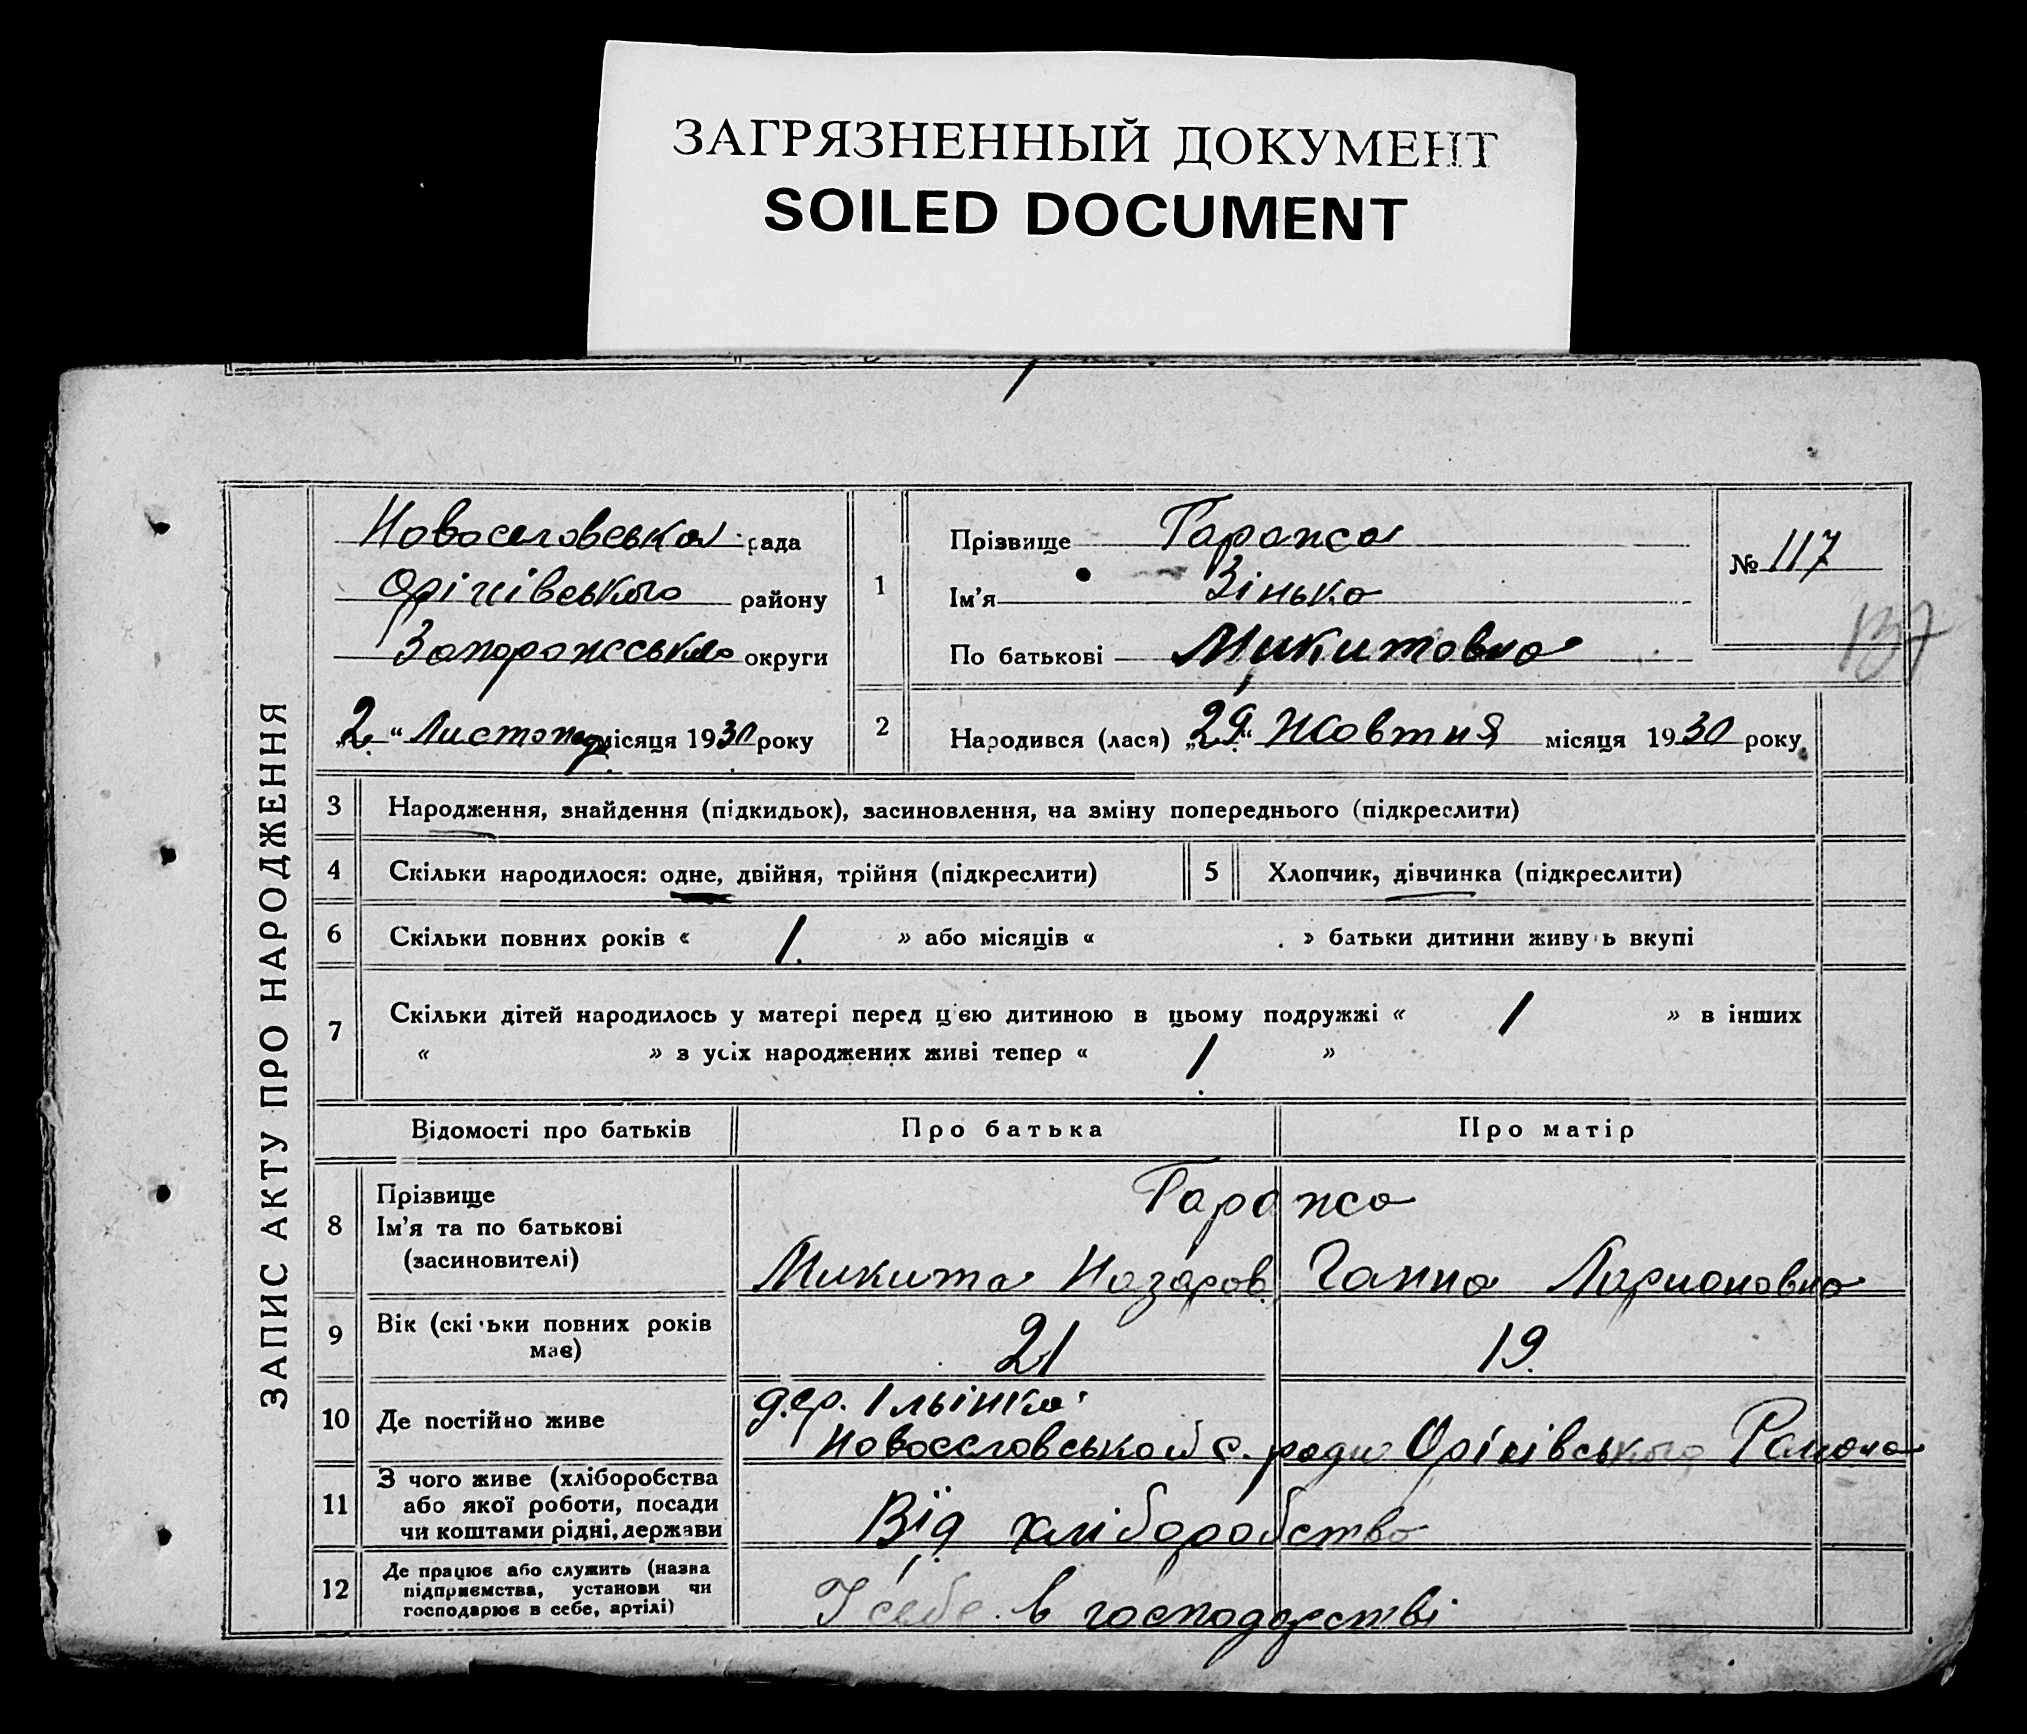 ЗАГРЯЗНЕННЫЙ ДОКУМЕНТ
SOILED DOCUMENT
ЗАПИС АКТУ ПРО НАРОДЖЕННЯ
Новоселовська рада
Оріхівського району
Запорожського округи
„2“ Листопад місяця 1930 року
1
Прізвище Гаража
Ім'я Зінька
По батькові Микитовна
№ 117
137
2 Народився (лася) „29“ Жовтня місяця 1930 року
3 Народження, знайдення (підкидьок), засиновлення, на зміну попереднього (підкреслити)
4 Скільки народилося: одне, двійня, трійня (підкреслити) 5 Хлопчик, дівчинка (підкреслити)
6 Скільки повних років « 1 » або місяців « » батьки дитини живу ь вкупі
7 Скільки дітей народилось у матері перед цією дитиною в цьому подружжі « 1 » в інших
« » з усіх народжених живі тепер « 1 »
Відомості про батьків Про батька Про матір
8 Прізвище
Ім'я та по батькові
(засиновителі)
Гаража
Микита Назаров. Ганна Ларионовна
9 Вік (скі ьки повних років
має)
21 19.
10 Де постійно живе
дер. Ільінка
Новоселовськой с. ради Оріхівського Району
11 З чого живе (хліборобства
або якої роботи, посади
чи коштами рідні, держави
Від хліборобство
12 Де працює або служить (назва
підприємства, установи чи
господарює в себе, артілі)
У себе в господарстві